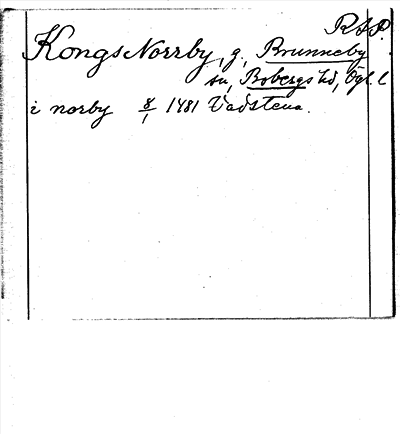 RAP.
Kongs Norrby, g., Brunneby
sn, Bobergs hd, Ögl. l
i norby 8/1 1481 Vadstena.